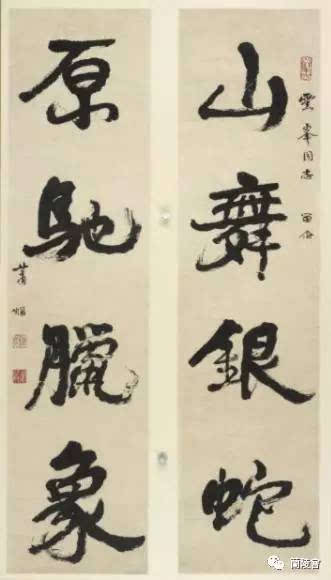 山舞銀蛇
雲峯同志 留念
原馳臘象
蕭嫻
蘭陵宮